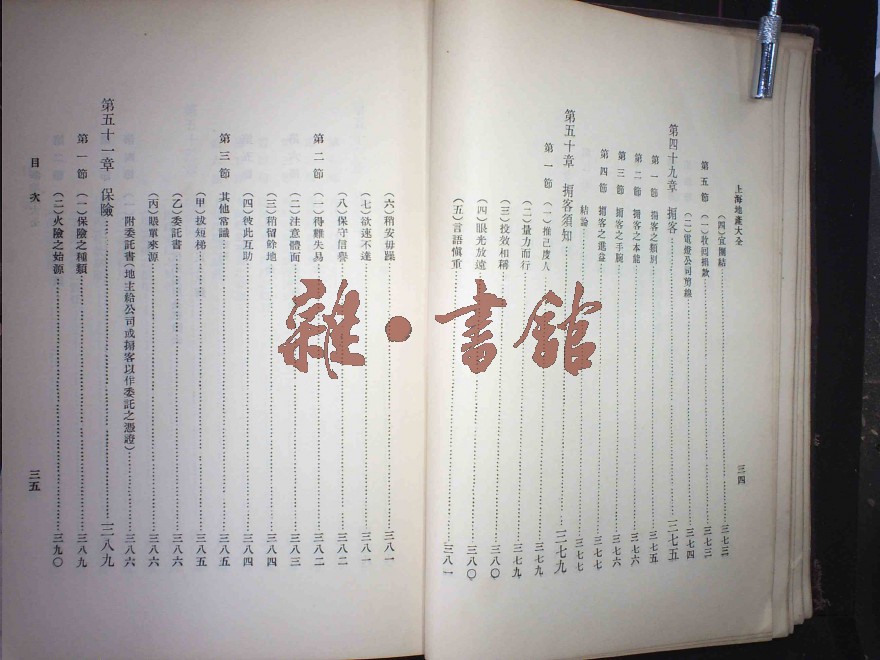 上海地產大全
三四
(四)宜團結……三七三
第五節 (一)收回捐款……三七三
(二)電燈公司剪線……三七四
第四十九章 掮客……三七五
第一節 掮客之類別……三七五
第二節 掮客之本能……三七六
第三節 掮客之手腕……三七六
第四節 掮客之進益……三七七
結論……三七七
第五十章 掮客須知……三七九
第一節 (一)推己度人……三七九
(二)量力而行……三七九
(三)投效相稱……三八〇
(四)眼光放遠……三八〇
(五)言語慎重……三八一
(六)稍安毋躁……三八一
(七)欲速不達……三八一
(八)保守信譽……三八二
第二節 (一)得難失易……三八二
(二)注意體面……三八三
(三)稍留餘地……三八四
(四)彼此互助……三八四
第三節 其他常識……三八五
(甲)拔短梯……三八五
(乙)委託書……三八六
(丙)賬單來源……三八六
(一)附委託書(地主給公司或掮客以作委託之憑證)……三八六
第五十一章 保險……三八九
第一節 (一)保險之種類……三八九
(二)火險之始源……三九〇
目次
三五
雜·書館